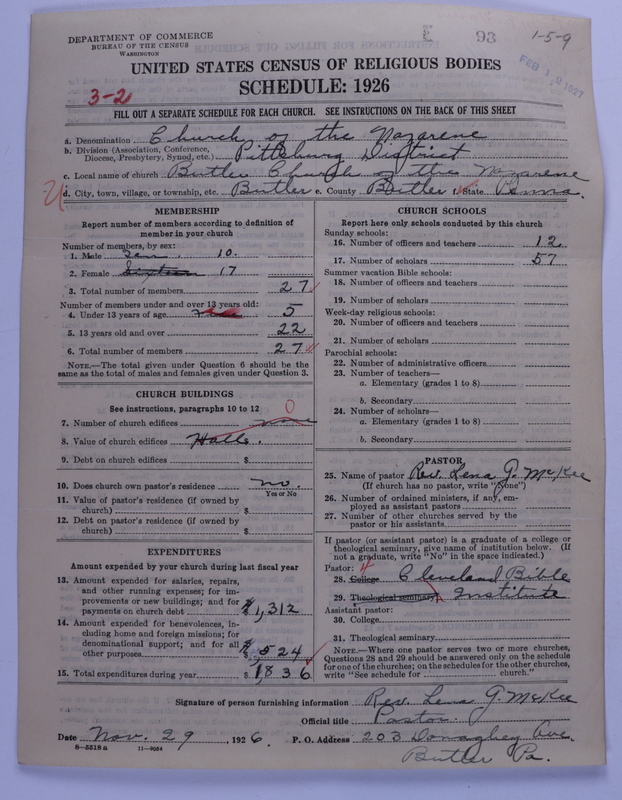 DEPARTMENT OF COMMERCE
BUREAU OF THE CENSUS
WASHINGTON
E 93
1-5-9
FEB 19 1927
UNITED STATES CENSUS OF RELIGIOUS BODIES
SCHEDULE: 1926
3-2
FILL OUT A SEPARATE SCHEDULE FOR EACH CHURCH. SEE INSTRUCTIONS ON THE BACK OF THIS SHEET
a. Denomination Church of the Nazarene
b. Division (Association, Conference, Diocese, Presbytery, Synod, etc.) Pittsburg District
c. Local name of church Butler Church of the Nazarene
d. City, town, village, or township, etc. Butler e. County Butler f. State Penna.
MEMBERSHIP
Report number of members according to definition of
member in your church
Number of members, by sex:
1. Male Ten 10.
2. Female Sixteen 17
3. Total number of members 27
Number of members under and over 13 years old:
4. Under 13 years of age 5
5. 13 years old and over 22
6. Total number of members 27
NOTE.—The total given under Question 6 should be the
same as the total of males and females given under Question 3.
CHURCH BUILDINGS
See instructions, paragraphs 10 to 12
0
7. Number of church edifices none
8. Value of church edifices Halls.
9. Debt on church edifices $
10. Does church own pastor's residence no.
Yes or No
11. Value of pastor's residence (if owned by
church) $
12. Debt on pastor's residence (if owned by
church) $
EXPENDITURES
Amount expended by your church during last fiscal year
13. Amount expended for salaries, repairs,
and other running expenses; for im-
provements or new buildings; and for
payments on church debt $1,312
14. Amount expended for benevolences, in-
cluding home and foreign missions; for
denominational support; and for all
other purposes $524
15. Total expenditures during year $1836
CHURCH SCHOOLS
Report here only schools conducted by this church
Sunday schools:
16. Number of officers and teachers 12
17. Number of scholars 57
Summer vacation Bible schools:
18. Number of officers and teachers
19. Number of scholars
Week-day religious schools:
20. Number of officers and teachers
21. Number of scholars
Parochial schools:
22. Number of administrative officers
23. Number of teachers—
a. Elementary (grades 1 to 8)
b. Secondary
24. Number of scholars—
a. Elementary (grades 1 to 8)
b. Secondary
PASTOR
25. Name of pastor Rev. Lena G. McKee
(If church has no pastor, write "None")
26. Number of ordained ministers, if any, em-
ployed as assistant pastors
27. Number of other churches served by the
pastor or his assistants
If pastor (or assistant pastor) is a graduate of a college or
theological seminary, give name of institution below. (If
not a graduate, write "No" in the space indicated.)
Pastor:
28. College Cleveland Bible
29. Theological seminary Institute
Assistant pastor:
30. College
31. Theological seminary
NOTE.—Where one pastor serves two or more churches,
Questions 28 and 29 should be answered only on the schedule
for one of the churches; on the schedules for the other churches,
write "See schedule for church."
Signature of person furnishing information Rev. Lena G. McKee
Official title Pastor.
Date Nov. 29, 1926. P. O. Address 203 Donaghey Ave.
8-5518 a 11-9054
Butler Pa.